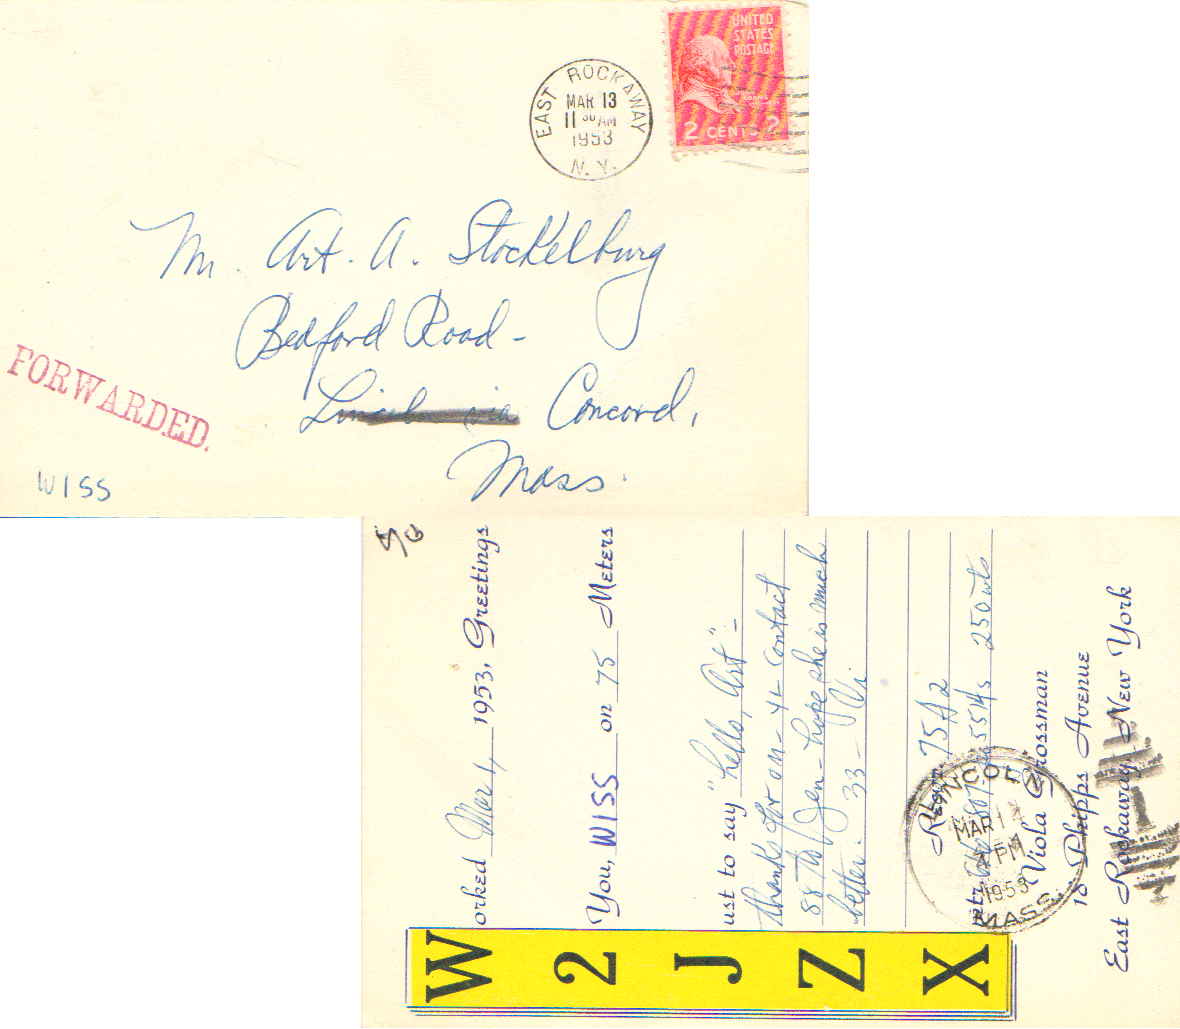 UNITED
STATES
POSTAGE
2 CENTS 2
EAST ROCKAWAY
MAR 13
11 30 AM
1953
N.Y.
Mr. Art. A. Stockelburg
Bedford Road -
Lincoln via Concord,
Mass.
FORWARDED.
W1SS
W
orked Mar 1, 1953, Greetings
2
You, W1SS on 75 Meters
J
ust to say "hello, Art" -
thanks for on - yl contact
88 to Jen - hope she is much
better. 33 - Vi.
Z
X
Recvr. 75A2
mtr. 807 5514s 250 wts
Viola Grossman
18 Phipps Avenue
East Rockaway New York
LINCOLN
MAR 14
PM
1953
MASS.